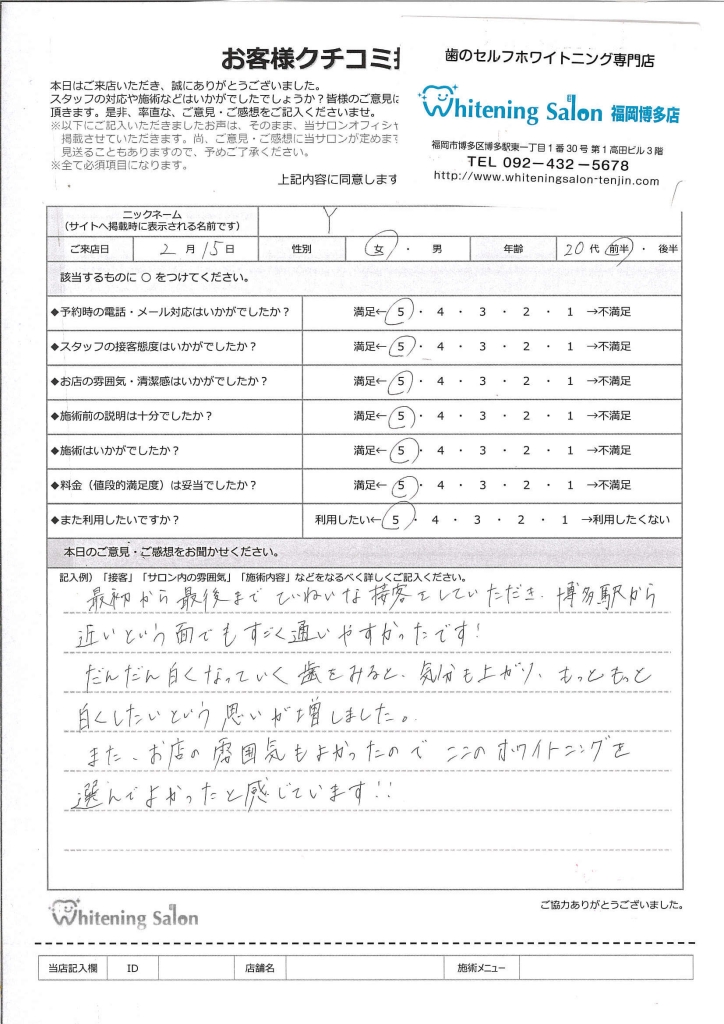 お客様クチコミ
歯のセルフホワイトニング専門店
Whitening Salon 福岡博多店
福岡市博多区博多駅東一丁目1番30号 第1高田ビル3階
TEL 092-432-5678
http://www.whiteningsalon-tenjin.com
本日はご来店いただき、誠にありがとうございました。
スタッフの対応や施術などはいかがでしたでしょうか？皆様のご意見に
頂きます。是非、率直な、ご意見・ご感想をご記入くださいませ。
※以下にご記入いただきましたお声は、そのまま、当サロンオフィシャ
掲載させていただきます。尚、ご意見・ご感想に当サロンが定めます
見送ることもありますので、予めご了承ください。
※全て必須項目になります。
上記内容に同意します
ニックネーム
（サイトへ掲載時に表示される名前です） Y
ご来店日 2 月 15 日 性別 女 ・ 男 年齢 20 代 前半 ・ 後半
該当するものに ○ をつけてください。
◆予約時の電話・メール対応はいかがでしたか？ 満足← 5 ・ 4 ・ 3 ・ 2 ・ 1 →不満足
◆スタッフの接客態度はいかがでしたか？ 満足← 5 ・ 4 ・ 3 ・ 2 ・ 1 →不満足
◆お店の雰囲気・清潔感はいかがでしたか？ 満足← 5 ・ 4 ・ 3 ・ 2 ・ 1 →不満足
◆施術前の説明は十分でしたか？ 満足← 5 ・ 4 ・ 3 ・ 2 ・ 1 →不満足
◆施術はいかがでしたか？ 満足← 5 ・ 4 ・ 3 ・ 2 ・ 1 →不満足
◆料金（値段的満足度）は妥当でしたか？ 満足← 5 ・ 4 ・ 3 ・ 2 ・ 1 →不満足
◆また利用したいですか？ 利用したい← 5 ・ 4 ・ 3 ・ 2 ・ 1 →利用したくない
本日のご意見・ご感想をお聞かせください。
記入例）「接客」「サロン内の雰囲気」「施術内容」などをなるべく詳しくご記入ください。
最初から最後までていねいな接客をしていただき、博多駅から
近いという面でもすごく通いやすかったです！
だんだん白くなっていく歯をみると、気分も上がり、もっともっと
白くしたいという思いが増しました。
また、お店の雰囲気もよかったのでここのホワイトニングを
選んでよかったと感じています！！
Whitening Salon
ご協力ありがとうございました。
当店記入欄 ID 店舗名 施術メニュー